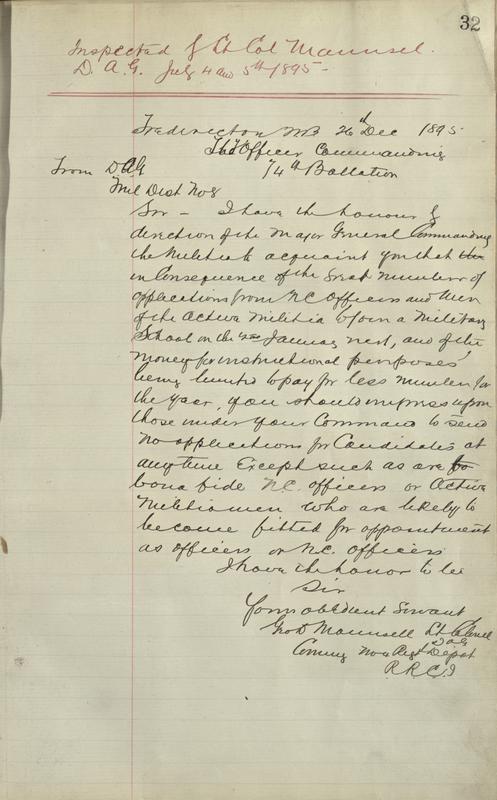 32
Inspected by Lt Col Maunsel.
D. A. G. July 4 and 5th 1895-
Fredericton NB 26th Dec 1895
The Officer Commanding
From DAG
74th Battalion
Mil Dist No 8
Sir - I have the honour by
direction of the Major General Commanding
the Militia to acquaint you that
in Consequence of the Great Number of
applications from N.C. Officers and Men
of the Active Militia to join a Military
School on the January next, and of the
money for instructional purposes
being limited to pay for less number for
the year, you should impress upon
those under your Command to send
no applications for Candidates at
any time Except such as are
bona fide N.C. officers or Active
Militiamen who are likely to
become fitted for appointment
as officers or N.C. officers
I have the honor to be
Sir
Your obedient Servant
Geo D Maunsell Lt Colonel
DAG
Comdg No 4 Regt Depot
R.R.C.I